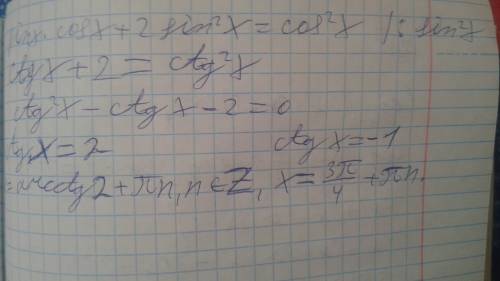 cosx + 2 sin²x = cos²x /: sin²x
ctgx + 2 = ctg²x
ctg²x - ctgx - 2 = 0
x = 2 ctgx = -1
2 + πn, n ∈ Z, x = 3π/4 + πn.